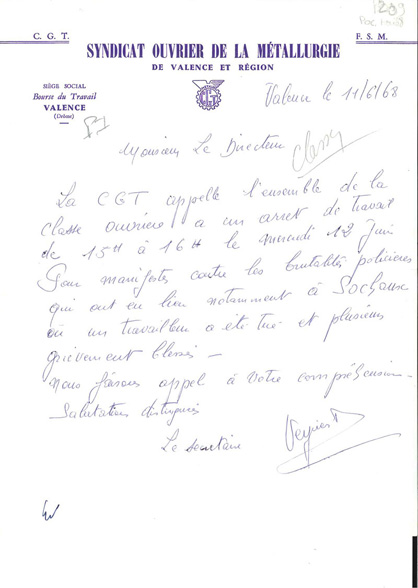 C. G. T.
F. S. M.
SYNDICAT OUVRIER DE LA MÉTALLURGIE
DE VALENCE ET RÉGION
SIÈGE SOCIAL
Bourse du Travail
VALENCE
(Drôme)
Valence le 11/6/68
Monsieur Le Directeur
La CGT appelle l'ensemble de la
classe ouvrière a un arret de travail
de 15H à 16H le mercredi 12 Juin
Pour manifester contre les brutalités policières
qui ont eu lieu notamment à Sochaux
où un travailleur a été tué et plusieurs
grièvement blessés -
Nous faisons appel à votre compréhension
Salutations distinguées
Le secrétaire